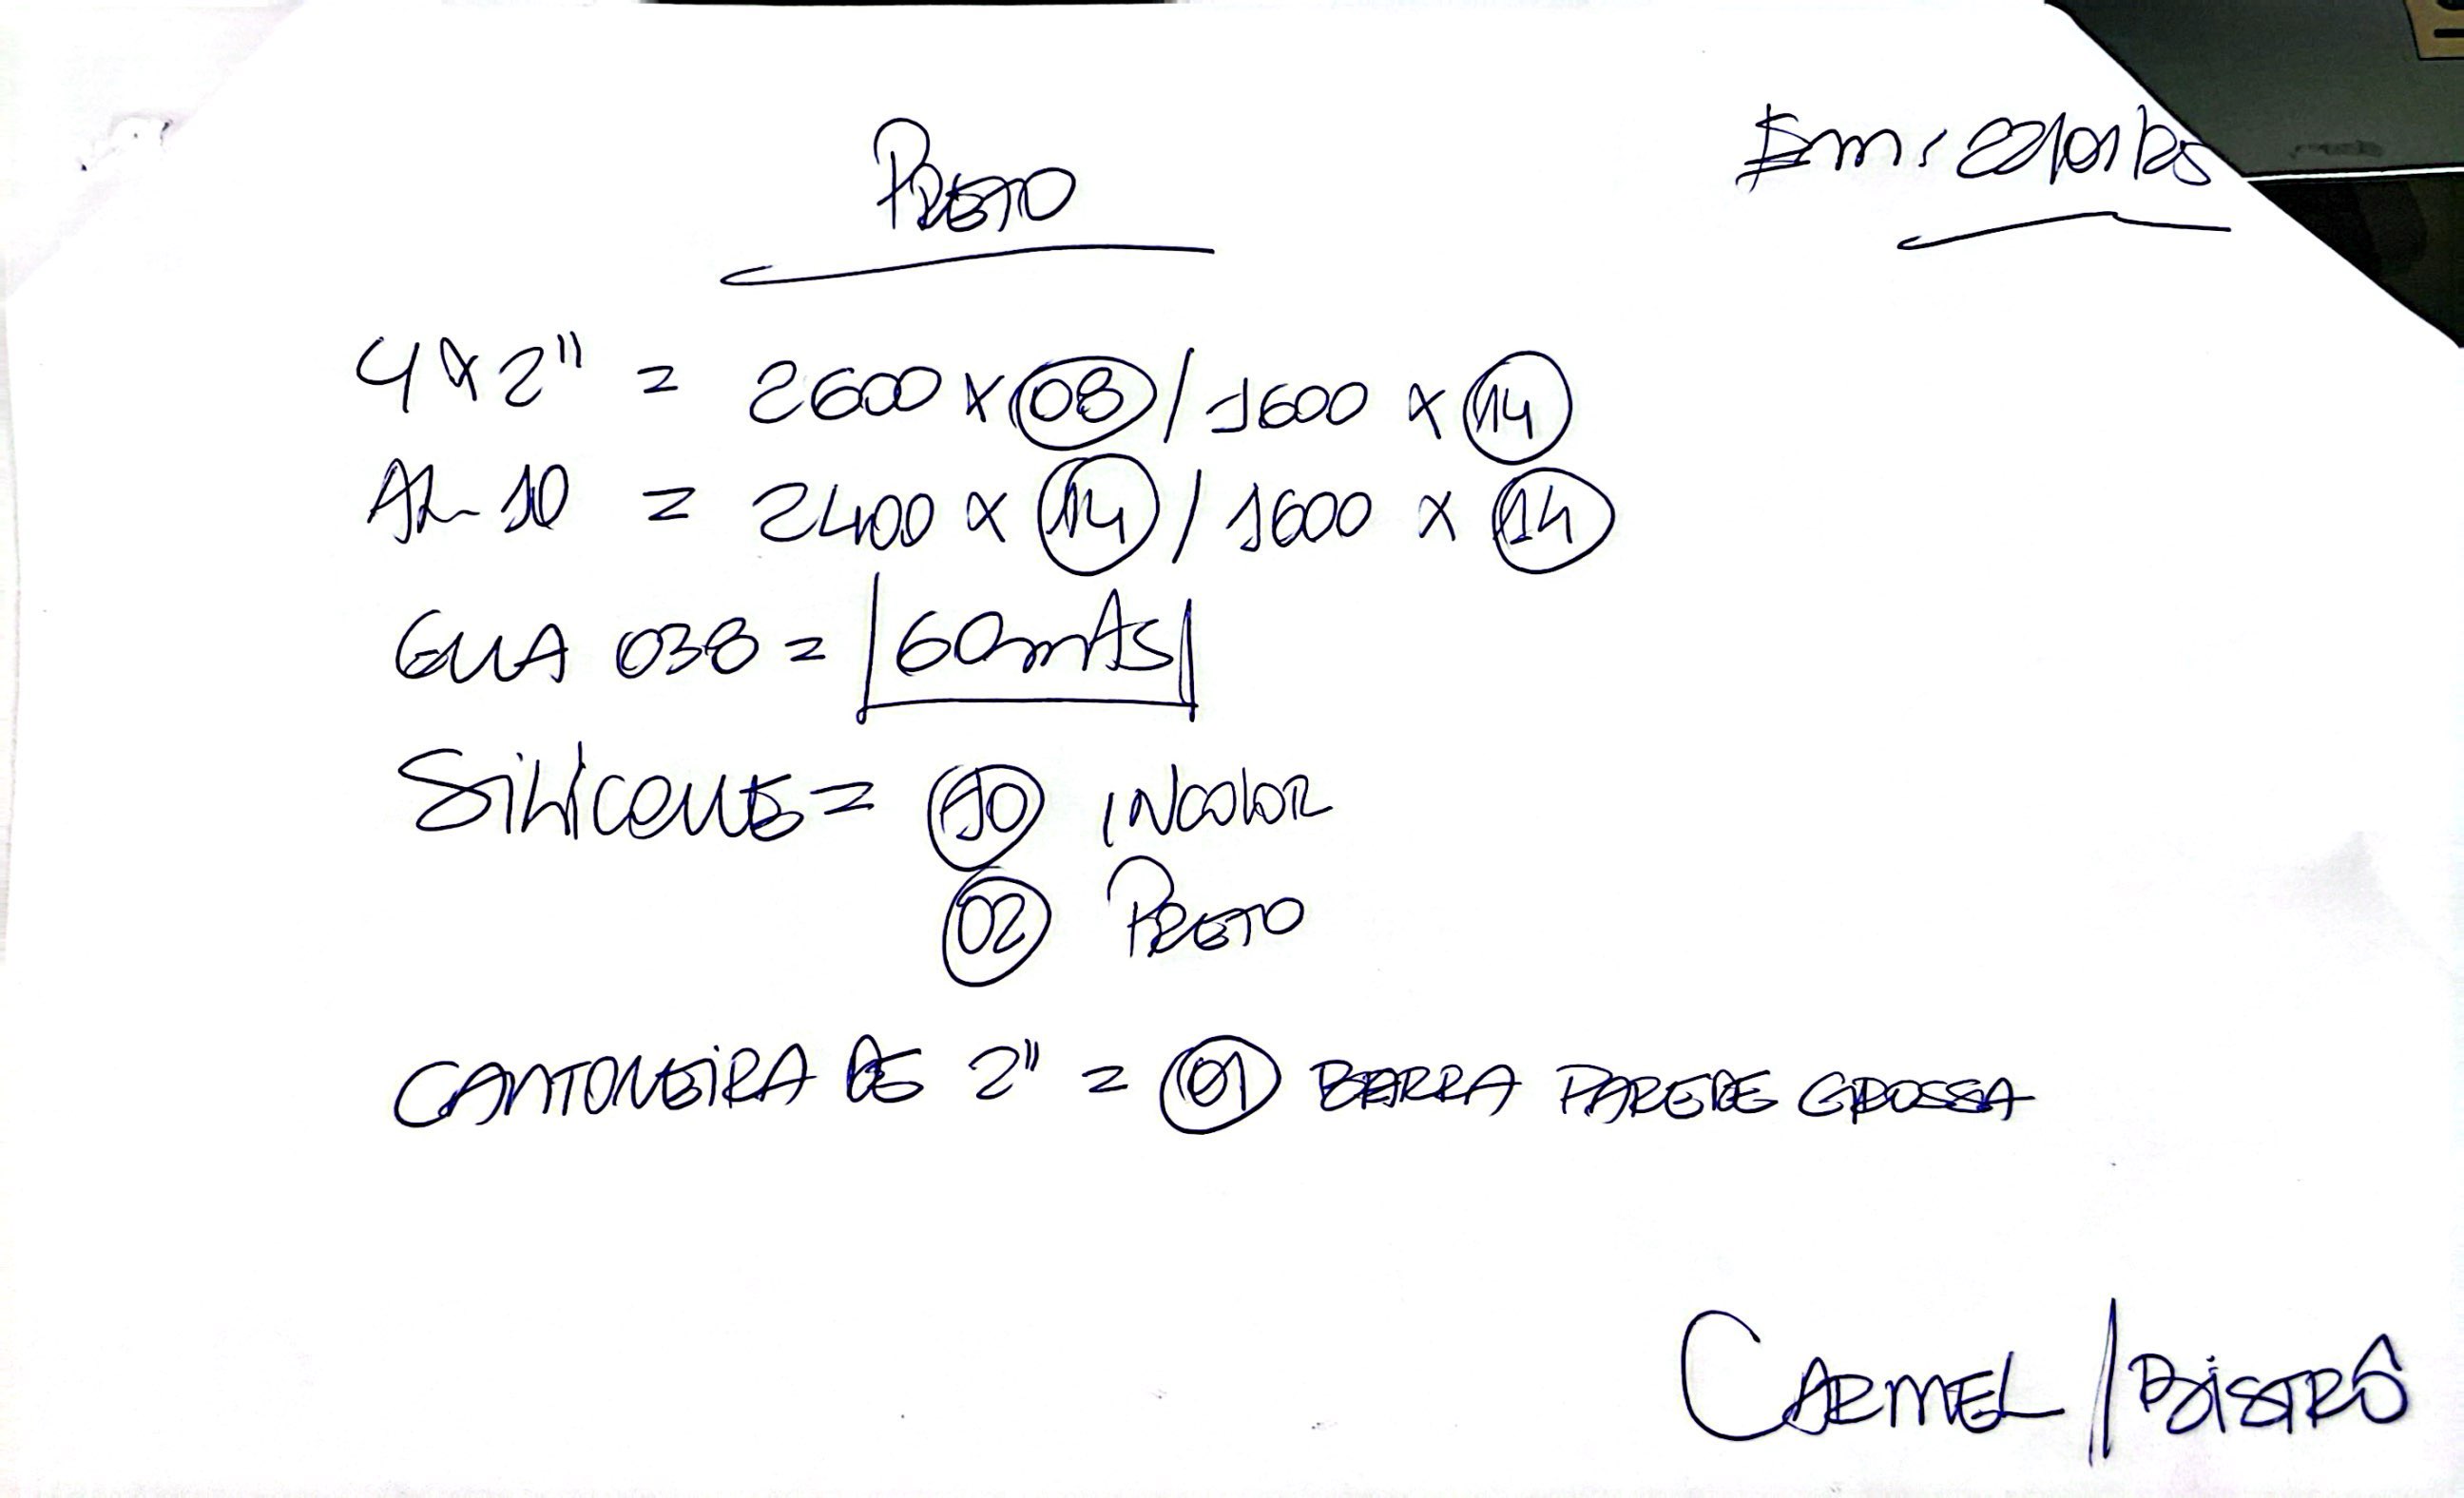 PRETO
Em: 22/01/25
4x2" = 2600 x 08 / 1600 x 14
AL 10 = 2400 x 14 / 1600 x 14
GUA 038 = 60mts
SILICONE = 10 INCOLOR
02 PRETO
CANTONEIRA DE 2" = 01 BARRA PAREDE GROSSA
CARMEL / BISTRÔ